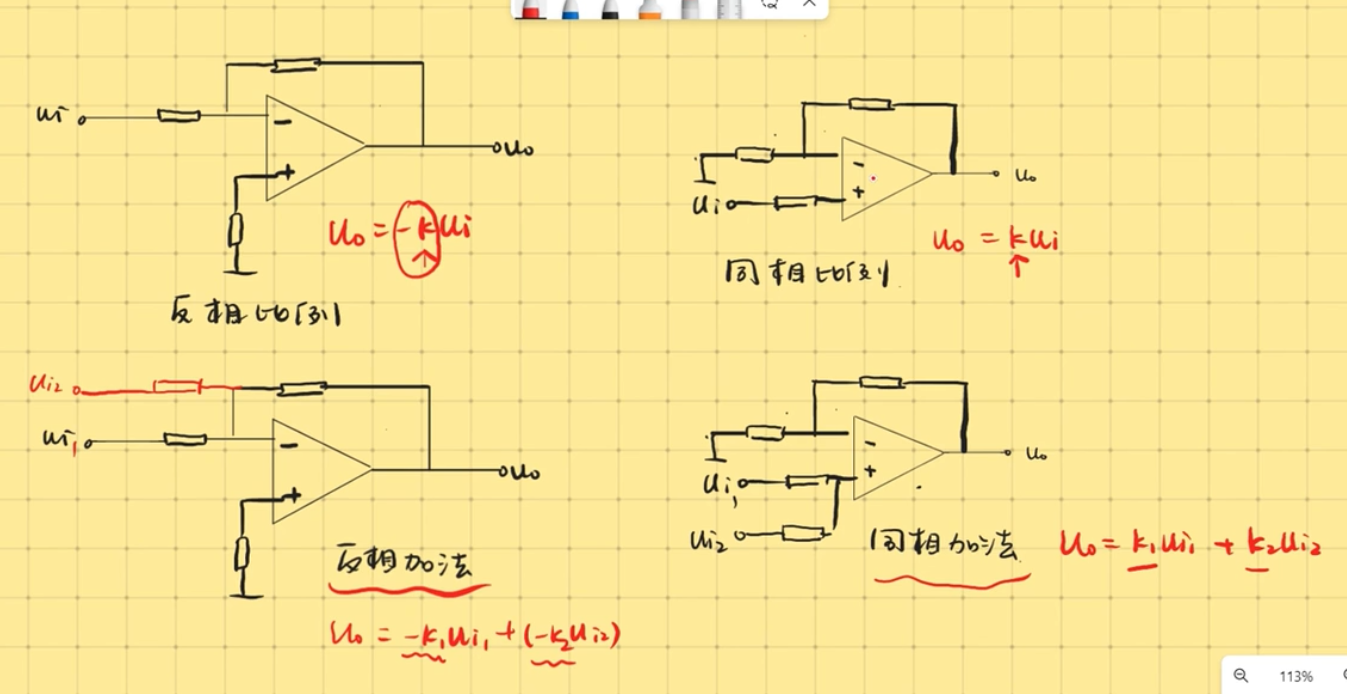 ui
uo
−
+
uo = -kui
反相比例
−
+
ui
uo
uo = kui
同相比例
ui2
ui1
−
+
uo
反相加法
uo = -k1ui1 + (-k2ui2)
−
+
ui1
ui2
uo
同相加法
uo = k1ui1 + k2ui2
113%